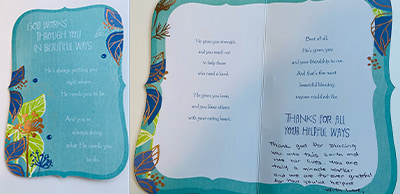 GOD WORKS
THROUGH YOU
IN BEAUTIFUL WAYS
He's always putting you
right where
He needs you to be.
And you're
always doing
what He needs you
to do.
He gives you strength
and you reach out
to help those
who need a hand.
He gives you love,
and you bless others
with your caring heart.
Best of all,
He's given you
and your friendship to me.
And that's the most
beautiful blessing
anyone could ask for.
THANKS FOR ALL
YOUR HELPFUL WAYS
Thank god for placing
you into this earth and
into our lives. You are
truly a miracle worker
and we are forever grateful
for how you've helped